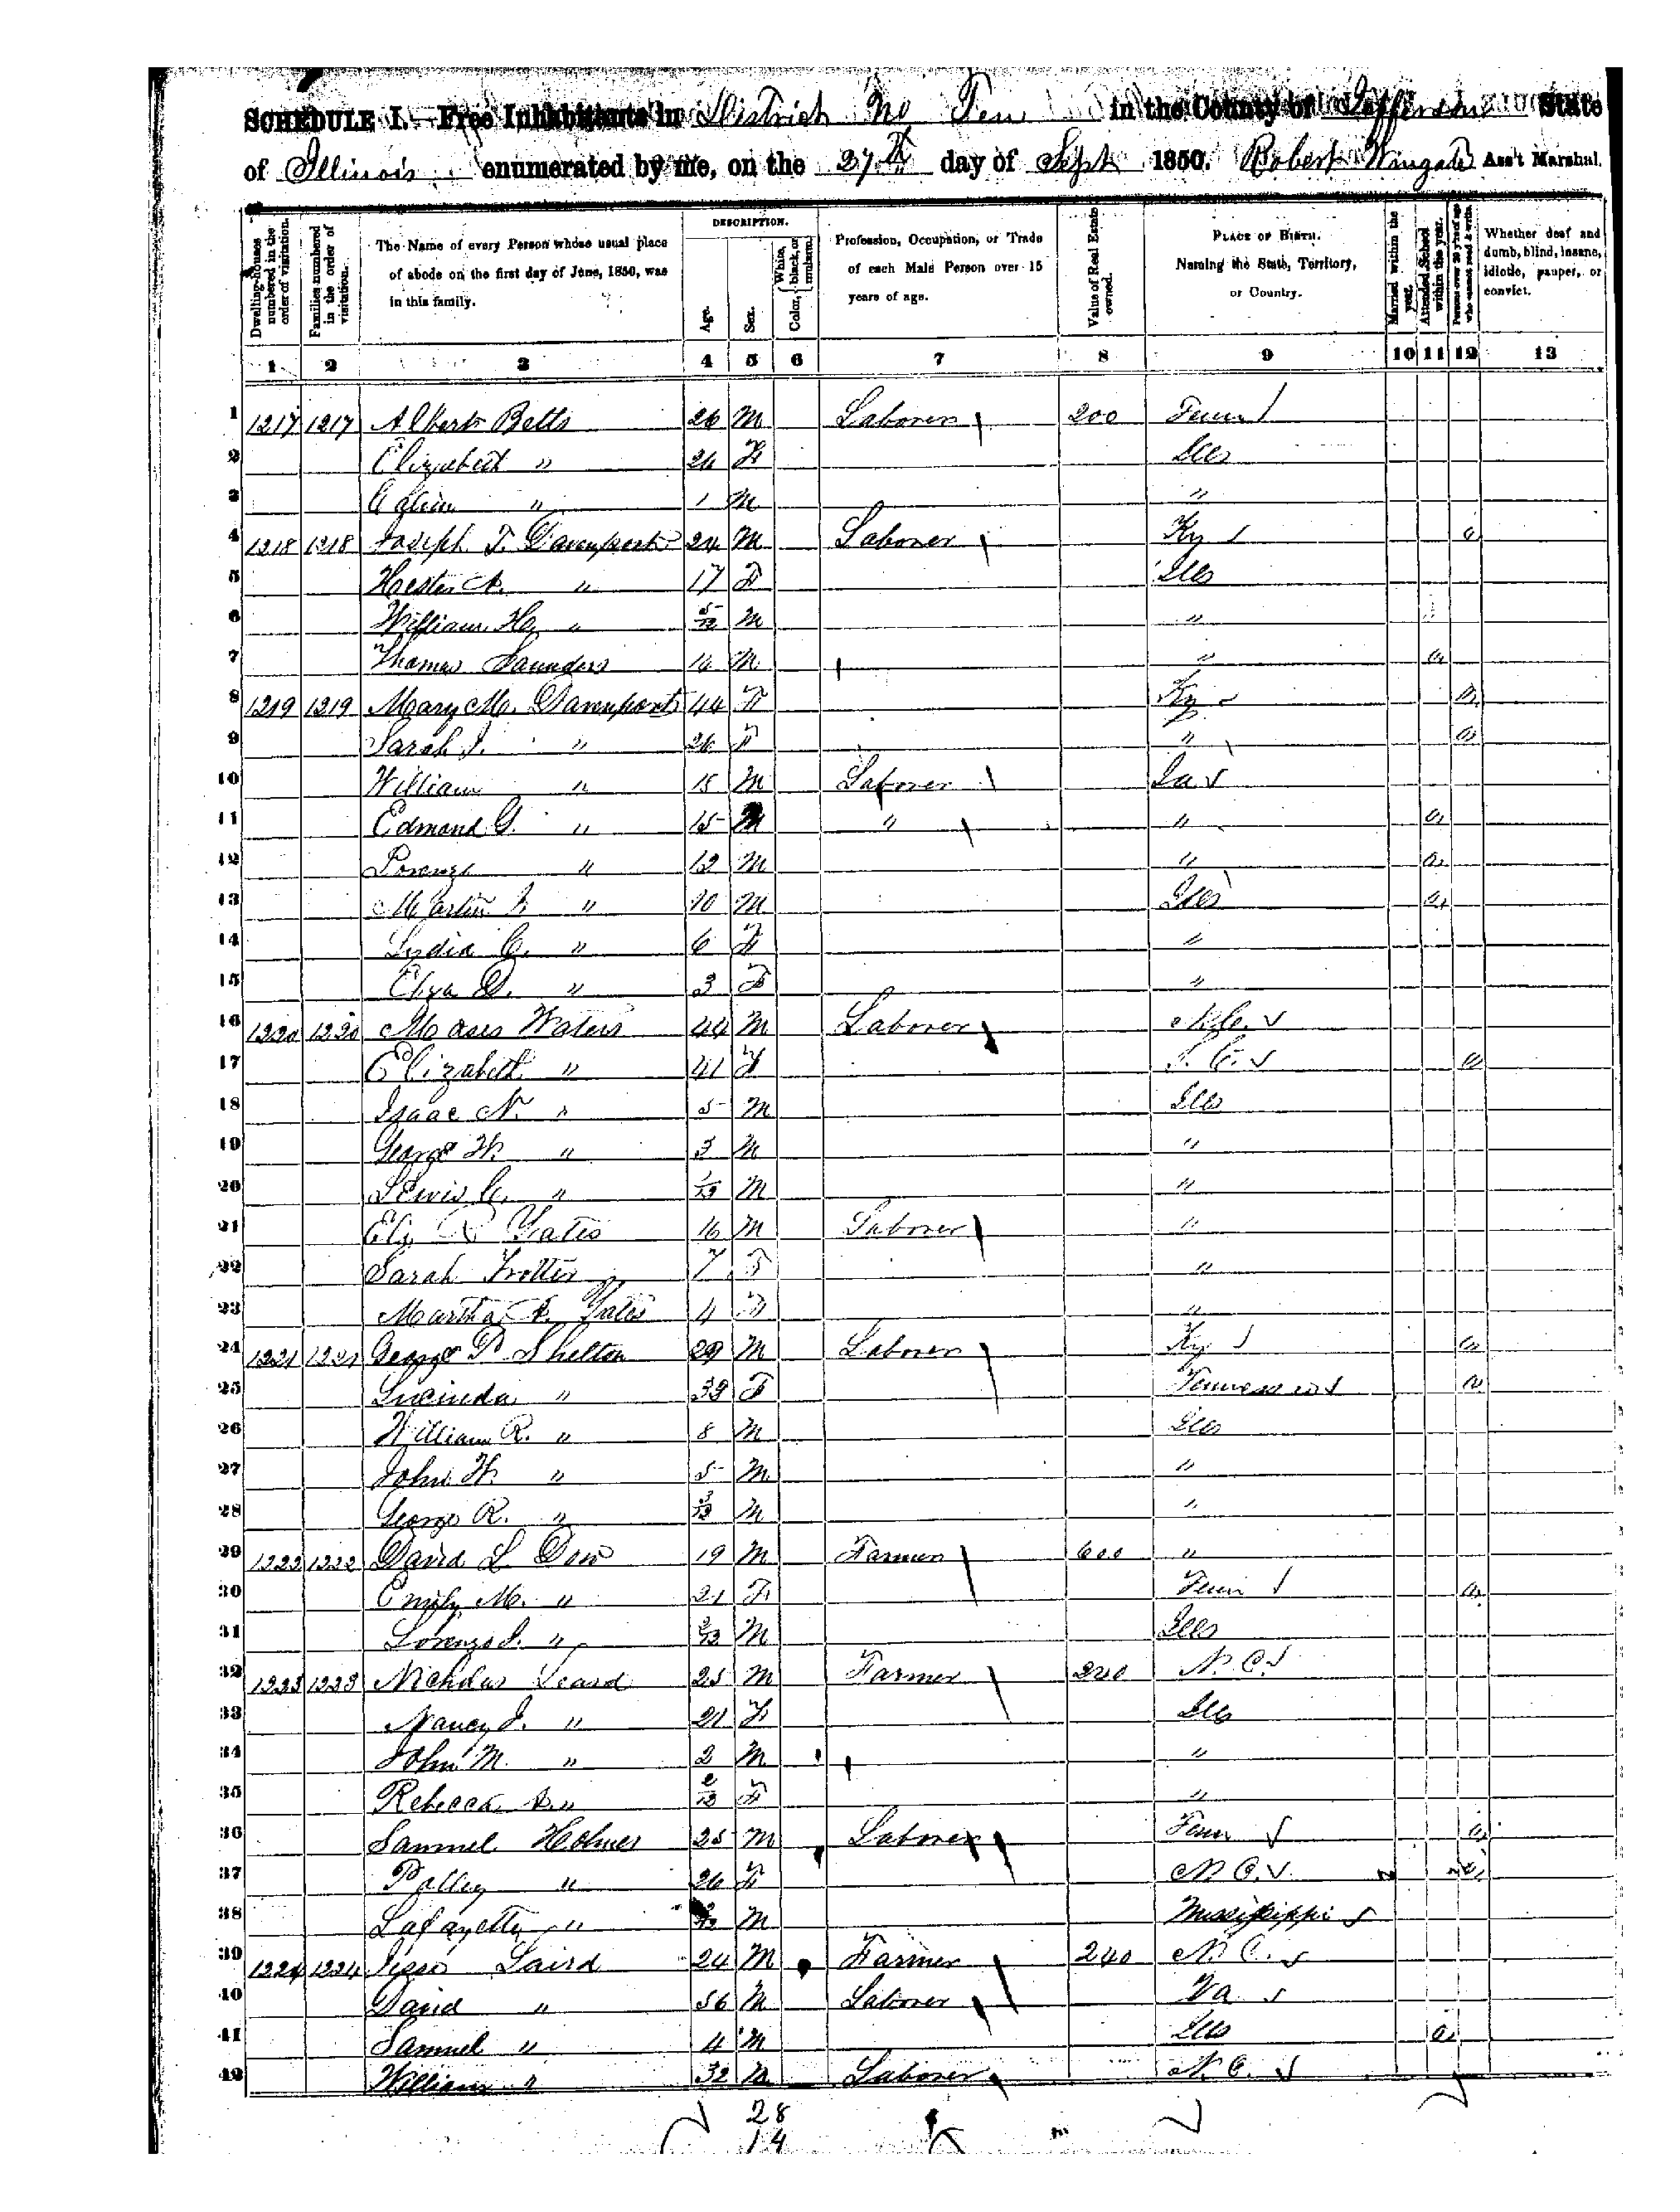 SCHEDULE I.—Free Inhabitants in District No Ten in the County of Jefferson State
of Illinois enumerated by me, on the 27th day of Sept 1850. Robert Wingate Ass't Marshal.
Dwelling-houses numbered in the order of visitation.
Families numbered in the order of visitation.
The Name of every Person whose usual place of abode on the first day of June, 1850, was in this family.
DESCRIPTION.
Age.
Sex.
Color, White, black, or mulatto.
Profession, Occupation, or Trade of each Male Person over 15 years of age.
Value of Real Estate owned.
PLACE OF BIRTH. Naming the State, Territory, or Country.
Married within the year.
Attended School within the year.
Persons over 20 y'rs of age who cannot read & write.
Whether deaf and dumb, blind, insane, idiotic, pauper, or convict.
1 2 3 4 5 6 7 8 9 10 11 12 13
1 1217 1217 Albert Betts 26 M Laborer 200 Tenn
2 Elizabeth " 24 F Ills
3 " 1 M "
4 1218 1218 Joseph T. Davenport 24 M Laborer Ky
5 Hester A. " 17 F Ills
6 William H. " 5/12 M "
7 Thomas Saunders 14 M "
8 1219 1219 Mary M. Davenport 44 F Ky
9 Sarah J. " 26 F "
10 William " 18 M Laborer Ia
11 Edmond G. " 15 M " "
12 Lorenzo " 12 M "
13 Martin " 10 M Ills
14 Lydia C. " 6 F "
15 Eliza D. " 3 F "
16 1220 1220 Moses Waters 44 M Laborer N.C.
17 Elizabeth " 41 F S.C.
18 Isaac N. " 5 M Ills
19 George W. " 3 M "
20 Lewis C. " 1/12 M "
21 Eli R Yates 16 M Laborer "
22 Sarah Trotter 7 F "
23 Martha A. Yates 4 F "
24 1221 1221 George P. Shelton 29 M Laborer Ky
25 Lucinda " 32 F Tennessee
26 William R. " 8 M Ills
27 John W. " 5 M "
28 George R. " 3/12 M "
29 1222 1222 David L Dow 19 M Farmer 600 "
30 Emily M. " 21 F Tenn
31 Lorenzo J. " 2/12 M Ills
32 1223 1223 Nicholas Leard 25 M Farmer 240 N.C.
33 Nancy J. " 21 F Ills
34 John M. " 2 M "
35 Rebecca A. " 2/12 F "
36 Samuel Holmes 25 M Laborer Tenn
37 Polley " 26 F N.C.
38 Lafayette " M Mississippi
39 1224 1224 Jesse Laird 24 M Farmer 240 N.C.
40 David " 56 M Laborer Va
41 Samuel " 4 M Ills
42 William " 32 M Laborer N.C.
28
14